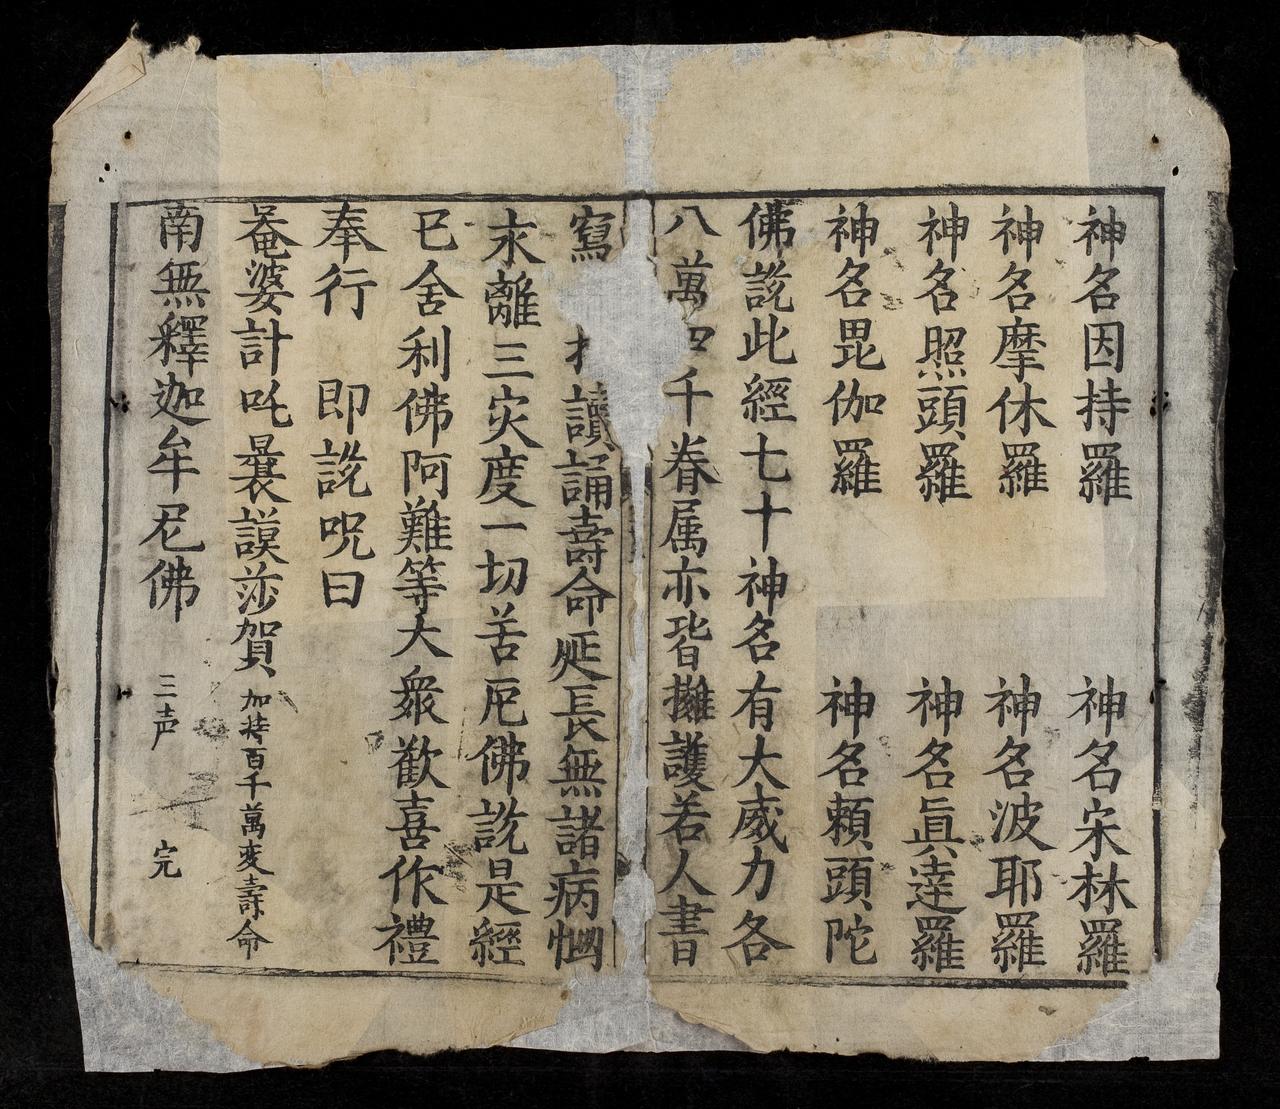 神名因持羅 神名宋林羅
神名摩休羅 神名波耶羅
神名照頭羅 神名眞達羅
神名毘伽羅 神名頼頭陀
佛説此經七十神名有大威力各
八萬四千眷属亦皆擁護若人書
寫 讀誦壽命延長無諸病惱
求離三灾度一切苦厄佛説是經
已舍利佛阿難等大衆歡喜作禮
奉行 即説呪曰
菴婆計吒曩謨莎賀 加持百千萬変壽命
南無釋迦牟尼佛 三声 完